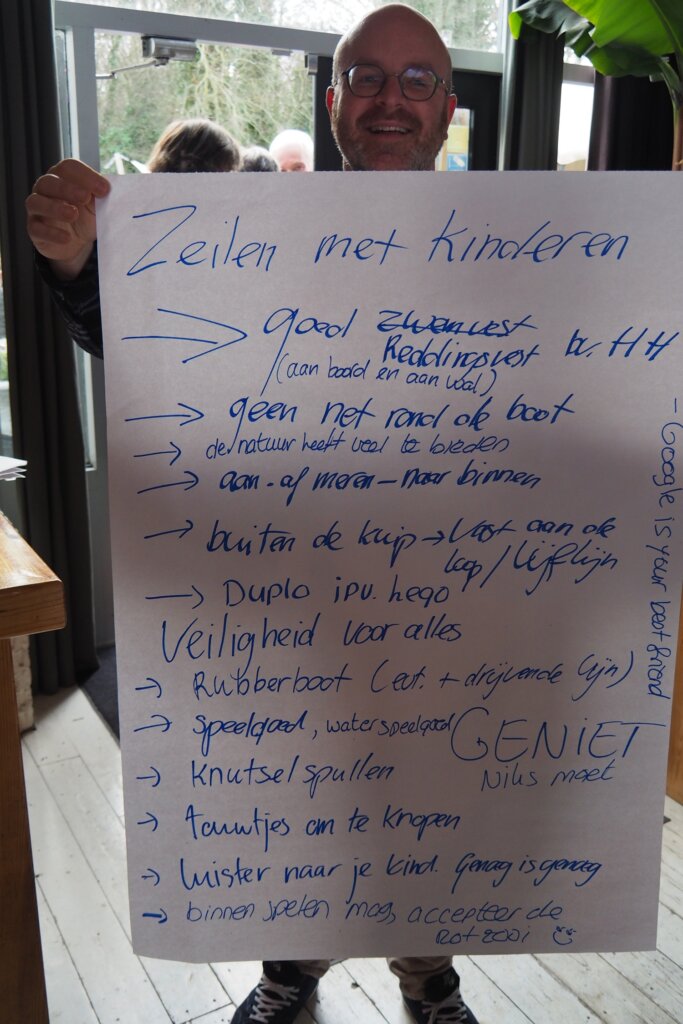 Zeilen met kinderen
→ goed ~~zwemvest~~
Reddingsvest bv. HH
(aan boord en aan wal)
→ geen net rond de boot
→ de natuur heeft veel te bieden
→ aan-af meren - naar binnen
→ buiten de kuip → Vast aan de
loop / Lijflijn
→ Duplo ipv. Lego
Veiligheid voor alles
→ Rubberboot (evt. + drijvende lijn)
→ speelgoed, waterspeelgoed
GENIET
Niks moet
→ Knutselspullen
→ touwtjes om te knopen
→ luister naar je kind. Genoeg is genoeg
→ binnen spelen mag, accepteer de
Rotzooi
- Google is your best friend